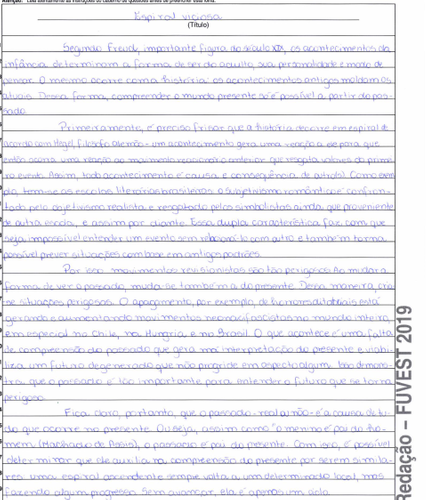 Atenção: Leia atentamente as instruções do caderno de questões antes de preencher esta folha.
Espiral viciosa
(Título)
Segundo Freud, importante figura do século XIX, os acontecimentos da
infância determinam a forma de ser do adulto, sua personalidade e modo de
pensar. O mesmo ocorre com a história: os acontecimentos antigos moldam os
atuais. Dessa forma, compreender o mundo presente só é possível a partir do pas-
sado.
Primeiramente, é preciso frisar que a história decorre em espiral de
acordo com Hegel, filósofo alemão - um acontecimento gera uma reação a ele para que
então ocorra uma reação ao movimento reacionário anterior que resgata valores do primei-
ro evento. Assim, todo acontecimento é causa e consequência de outro(s). Como exem-
plo, temos as escolas literárias brasileiras: o subjetivismo romântico é confron-
tado pelo objetivismo realista e resgatado pelos simbolistas ainda que proveniente
de outra escola, e assim por diante. Essa dupla característica faz com que
seja impossível entender um evento sem relacioná-lo com outro e também torna
possível prever situações com base em antigos padrões.
Por isso movimentos revisionistas são tão perigosos. Ao mudar a
forma de ver o passado, muda-se também a do presente. Dessa maneira, cria-
se situações perigosas. O apagamento, por exemplo, de horrores ditatoriais está
gerando e aumentando movimentos neonazifascistas no mundo inteiro,
em especial no Chile, na Hungria e no Brasil. O que acontece é uma falta
de compreensão do passado que gera má interpretação do presente e viabi-
liza um futuro degenerado que não progride em aspecto algum. Isso demons-
tra que o passado é tão importante para entender o futuro que se torna
perigoso.
Fica claro, portanto, que o passado - real ou não - é a causa de tu-
do que ocorre no presente. Ou seja, assim como "o menino é pai do ho-
mem" (Machado de Assis), o passado é pai do presente. Com isso, é possível
determinar que ele auxilia na compreensão do presente por serem simila-
res: uma espiral ascendente sempre volta a um determinado local, mas
fazendo algum progresso. Sem avançar, ela é apenas um ciclo.
Redação – FUVEST 2019